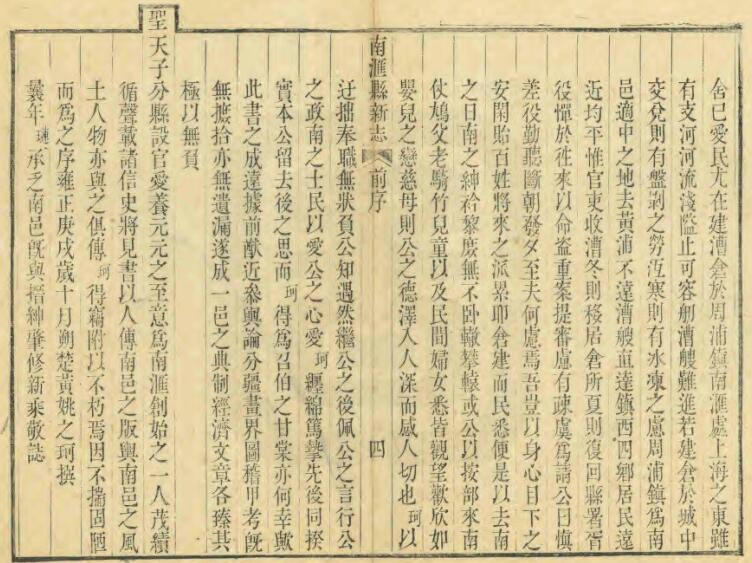 舍已愛民尤在建漕倉於周浦鎮南滙處上海之東雖
有支河河流淺隘止可容舠漕艘難進若建倉於城中
交兌則有盤剝之勞沍寒則有氷凍之慮周浦鎮爲南
邑適中之地去黃浦不遠漕艘直達鎮西四鄉居民遠
近均平惟官吏收漕冬則移居倉所夏則復回縣署胥
役憚於徃來以命盜重案提審慮有疎虞爲請公曰慎
差役勤聽斷朝發夕至夫何慮焉吾豈以身心目下之
安閑貽百姓將來之派累耶倉建而民悉便是以去南
之日南之紳衿黎庶無不卧轍攀轅或公以按部來南
仗鳩父老騎竹兒童以及民間婦女悉皆觀望歡欣如
嬰兒之戀慈母則公之德澤人人深而感人切也珂以
南滙縣新志 前序 四
迂拙奉職無狀負公知遇然繼公之後佩公之言行公
之政南之士民以愛公之心愛珂纒綿篤摯先後同揆
實本公留去後之思而珂得爲召伯之甘棠亦何幸歟
此書之成遠據前猷近參輿論分疆畫界圖稽甲考旣
無摭拾亦無遺漏遂成一邑之典制經濟文章各臻其
極以無負
聖天子分縣設官愛養元元之至意爲南滙創始之一人茂績
循聲載諸信史將見書以人傳南邑之版與南邑之風
土人物亦與之俱傳珂得竊附以不朽焉因不揣固陋
而爲之序雍正庚戌歲十月朔楚黃姚之珂撰
曩年璉承乏南邑旣與搢紳肇修新乘敬誌